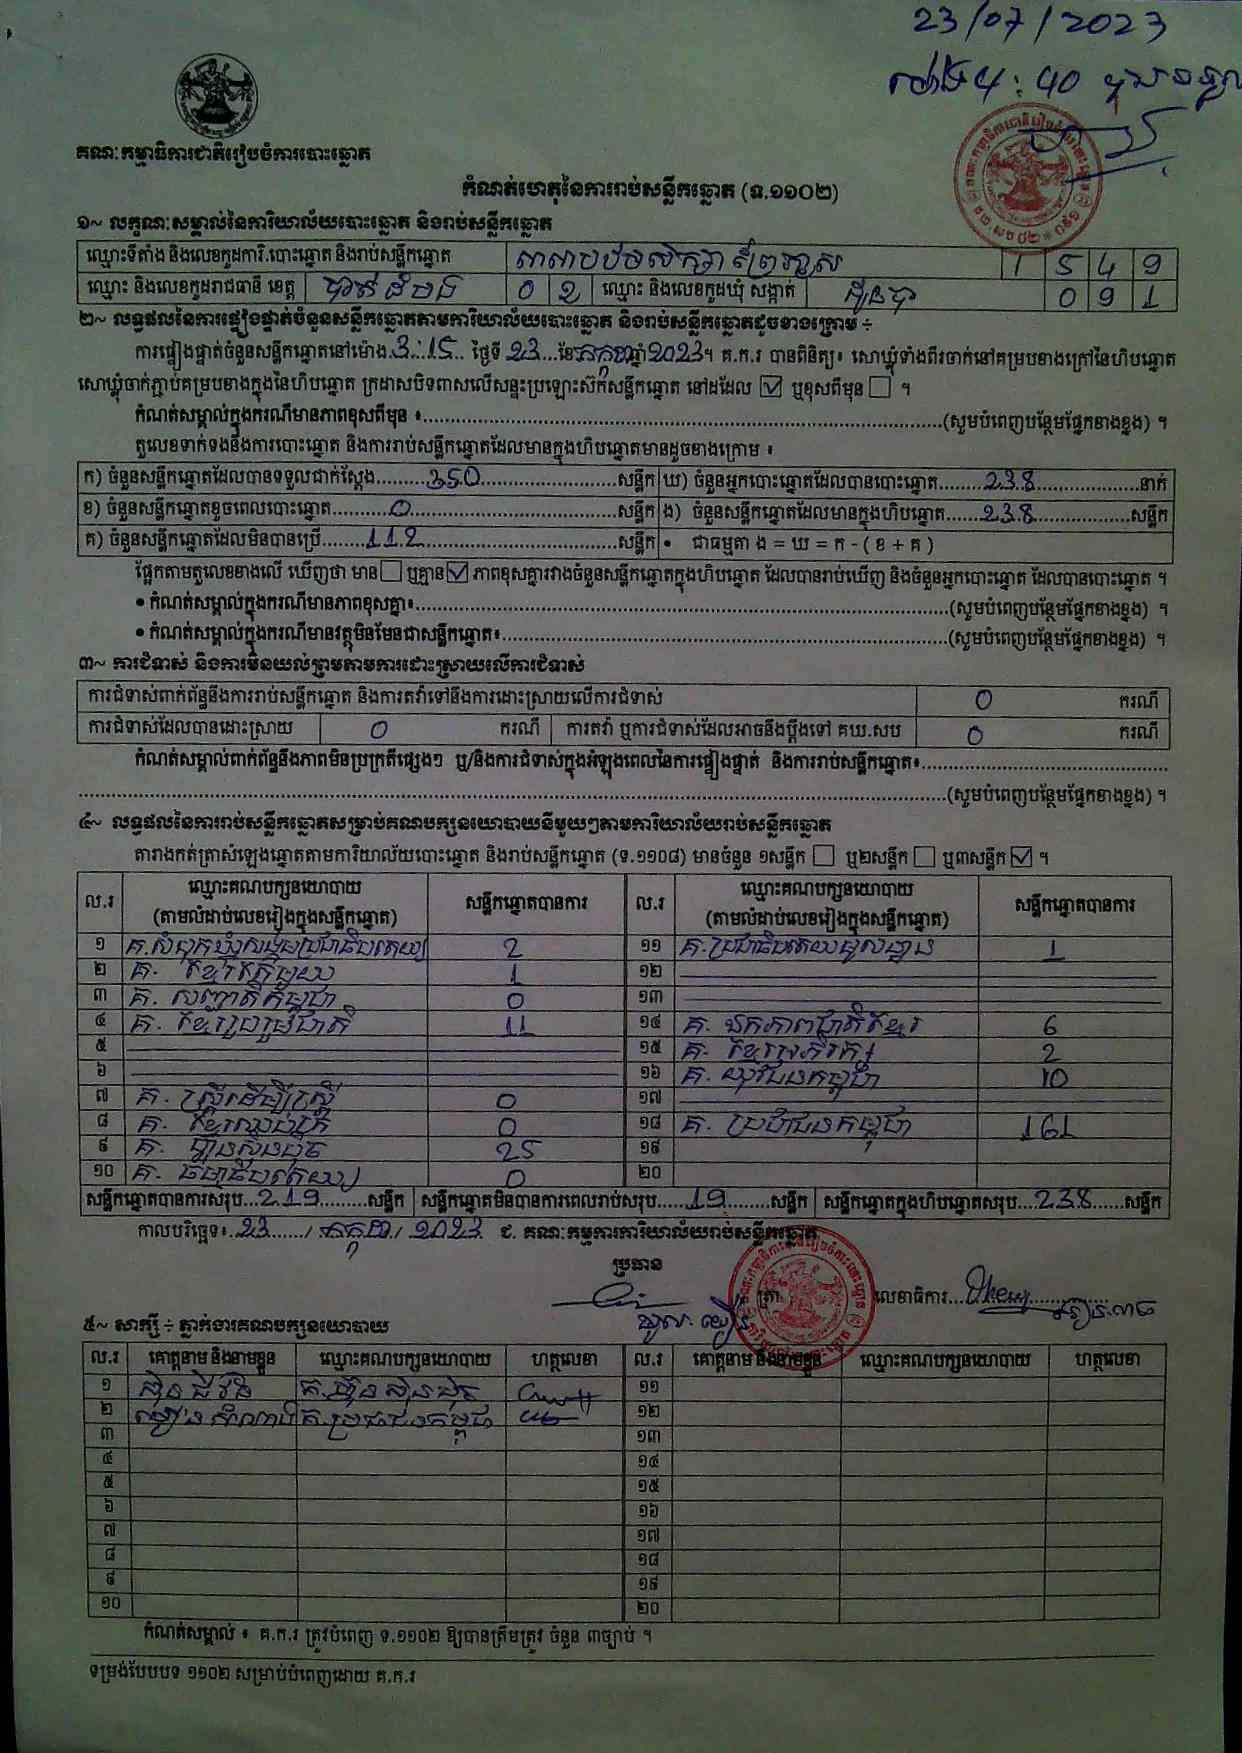 23/07/2023
ម៉ោង 4:40
គណៈកម្មាធិការជាតិរៀបចំការបោះឆ្នោត
កំណត់ហេតុនៃការរាប់សន្លឹកឆ្នោត (ទ.១១០២)
១~ លក្ខណៈសម្គាល់នៃការិយាល័យបោះឆ្នោត និងរាប់សន្លឹកឆ្នោត
ឈ្មោះទីតាំង និងលេខកូដការិ.បោះឆ្នោត និងរាប់សន្លឹកឆ្នោត 1 5 4 9
ឈ្មោះ និងលេខកូដរាជធានី ខេត្ត បាត់ដំបង 0 2 ឈ្មោះ និងលេខកូដឃុំ សង្កាត់ ដូនបា 0 9 1
២~ លទ្ធផលនៃការផ្ទៀងផ្ទាត់ចំនួនសន្លឹកឆ្នោតតាមការិយាល័យបោះឆ្នោត និងរាប់សន្លឹកឆ្នោតដូចខាងក្រោម ÷
ការផ្ទៀងផ្ទាត់ចំនួនសន្លឹកឆ្នោតនៅម៉ោង 3:15 ថ្ងៃទី 23 ខែ កក្កដា ឆ្នាំ 2023។ គ.ក.រ បានពិនិត្យ៖ សោឃ្លុំទាំងពីរចាក់នៅគម្របខាងក្រៅនៃហិបឆ្នោត
សោឃ្លុំចាក់ភ្ជាប់គម្របខាងក្នុងនៃហិបឆ្នោត ក្រដាសបិទពាសលើសន្ទះប្រឡោះស៊កសន្លឹកឆ្នោត នៅដដែល ☑ ឬខុសពីមុន ☐ ។
កំណត់សម្គាល់ក្នុងករណីមានភាពខុសពីមុន ៖.....(សូមបំពេញបន្ថែមផ្នែកខាងខ្នង) ។
តួលេខទាក់ទងនឹងការបោះឆ្នោត និងការរាប់សន្លឹកឆ្នោតដែលមានក្នុងហិបឆ្នោតមានដូចខាងក្រោម ៖
ក) ចំនួនសន្លឹកឆ្នោតដែលបានទទួលជាក់ស្តែង.....350.....សន្លឹក ឃ) ចំនួនអ្នកបោះឆ្នោតដែលបានបោះឆ្នោត.....238.....នាក់
ខ) ចំនួនសន្លឹកឆ្នោតខូចពេលបោះឆ្នោត.....0.....សន្លឹក ង) ចំនួនសន្លឹកឆ្នោតដែលមានក្នុងហិបឆ្នោត.....238.....សន្លឹក
គ) ចំនួនសន្លឹកឆ្នោតដែលមិនបានប្រើ.....112.....សន្លឹក • ជាធម្មតា ង = ឃ = ក - ( ខ + គ )
ផ្អែកតាមតួលេខខាងលើ ឃើញថា មាន ☐ ឬគ្មាន ☑ ភាពខុសគ្នារវាងចំនួនសន្លឹកឆ្នោតក្នុងហិបឆ្នោត ដែលបានរាប់ឃើញ និងចំនួនអ្នកបោះឆ្នោត ដែលបានបោះឆ្នោត ។
• កំណត់សម្គាល់ក្នុងករណីមានភាពខុសគ្នា៖.....(សូមបំពេញបន្ថែមផ្នែកខាងខ្នង) ។
• កំណត់សម្គាល់ក្នុងករណីមានវត្ថុមិនមែនជាសន្លឹកឆ្នោត៖.....(សូមបំពេញបន្ថែមផ្នែកខាងខ្នង) ។
៣~ ការជំទាស់ និងការមិនយល់ព្រមតាមការដោះស្រាយលើការជំទាស់
ការជំទាស់ពាក់ព័ន្ធនឹងការរាប់សន្លឹកឆ្នោត និងការតវ៉ាទៅនឹងការដោះស្រាយលើការជំទាស់ 0 ករណី
ការជំទាស់ដែលបានដោះស្រាយ 0 ករណី ការតវ៉ា ឬការជំទាស់ដែលអាចនឹងប្តឹងទៅ គឃ.សប 0 ករណី
កំណត់សម្គាល់ពាក់ព័ន្ធនឹងភាពមិនប្រក្រតីផ្សេងៗ ឬ/និងការជំទាស់ក្នុងអំឡុងពេលនៃការផ្ទៀងផ្ទាត់ និងការរាប់សន្លឹកឆ្នោត៖.....
.....(សូមបំពេញបន្ថែមផ្នែកខាងខ្នង) ។
៤~ លទ្ធផលនៃការរាប់សន្លឹកឆ្នោតសម្រាប់គណបក្សនយោបាយនីមួយៗតាមការិយាល័យរាប់សន្លឹកឆ្នោត
តារាងកត់ត្រាសំឡេងឆ្នោតតាមការិយាល័យបោះឆ្នោត និងរាប់សន្លឹកឆ្នោត (ទ.១១០៨) មានចំនួន ១សន្លឹក ☐ ឬ២សន្លឹក ☐ ឬ៣សន្លឹក ☑ ។
ល.រ ឈ្មោះគណបក្សនយោបាយ (តាមលំដាប់លេខរៀងក្នុងសន្លឹកឆ្នោត) សន្លឹកឆ្នោតបានការ ល.រ ឈ្មោះគណបក្សនយោបាយ (តាមលំដាប់លេខរៀងក្នុងសន្លឹកឆ្នោត) សន្លឹកឆ្នោតបានការ
១ គ.សំបុកឃ្មុំសង្គមប្រជាធិបតេយ្យ 2 ១១ គ.ប្រជាធិបតេយ្យមូលដ្ឋាន 1
២ គ. ខ្មែរតែមួយ 1 ១២
៣ គ. សញ្ជាតិកម្ពុជា 0 ១៣
៤ គ. ខ្មែររួបរួមជាតិ 11 ១៤ គ. ឯកភាពជាតិខ្មែរ 6
៥ ១៥ គ. ខ្មែរអភិរក្ស 2
៦ ១៦ គ. យុវជនកម្ពុជា 10
៧ គ. ស្ត្រីដើម្បីស្ត្រី 0 ១៧
៨ គ. ខ្មែរឈប់ក្រ 0 ១៨ គ. ប្រជាជនកម្ពុជា 161
៩ គ. ហ្វ៊ុនស៊ិនប៉ិច 25 ១៩
១០ គ. ធម្មាធិបតេយ្យ 0 ២០
សន្លឹកឆ្នោតបានការសរុប...219...សន្លឹក សន្លឹកឆ្នោតមិនបានការពេលរាប់សរុប...19...សន្លឹក សន្លឹកឆ្នោតក្នុងហិបឆ្នោតសរុប...238...សន្លឹក
កាលបរិច្ឆេទ៖ 23 / កក្កដា / 2023 ជ. គណៈកម្មការការិយាល័យរាប់សន្លឹកឆ្នោត
ប្រធាន
ត្រា លេខាធិការ
៥~ សាក្សី ÷ ភ្នាក់ងារគណបក្សនយោបាយ
ល.រ គោត្តនាម និងនាមខ្លួន ឈ្មោះគណបក្សនយោបាយ ហត្ថលេខា ល.រ គោត្តនាម និងនាមខ្លួន ឈ្មោះគណបក្សនយោបាយ ហត្ថលេខា
១ គ.ហ្វ៊ុនស៊ិនប៉ិច ១១
២ គ.ប្រជាជនកម្ពុជា ១២
៣ ១៣
៤ ១៤
៥ ១៥
៦ ១៦
៧ ១៧
៨ ១៨
៩ ១៩
១០ ២០
កំណត់សម្គាល់ ៖ គ.ក.រ ត្រូវបំពេញ ទ.១១០២ ឱ្យបានត្រឹមត្រូវ ចំនួន ៣ច្បាប់ ។
ទម្រង់បែបបទ ១១០២ សម្រាប់បំពេញដោយ គ.ក.រ